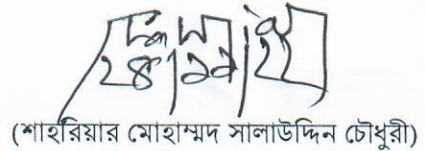 (শাহরিয়ার মোহাম্মদ সালাউদ্দিন চৌধুরী)